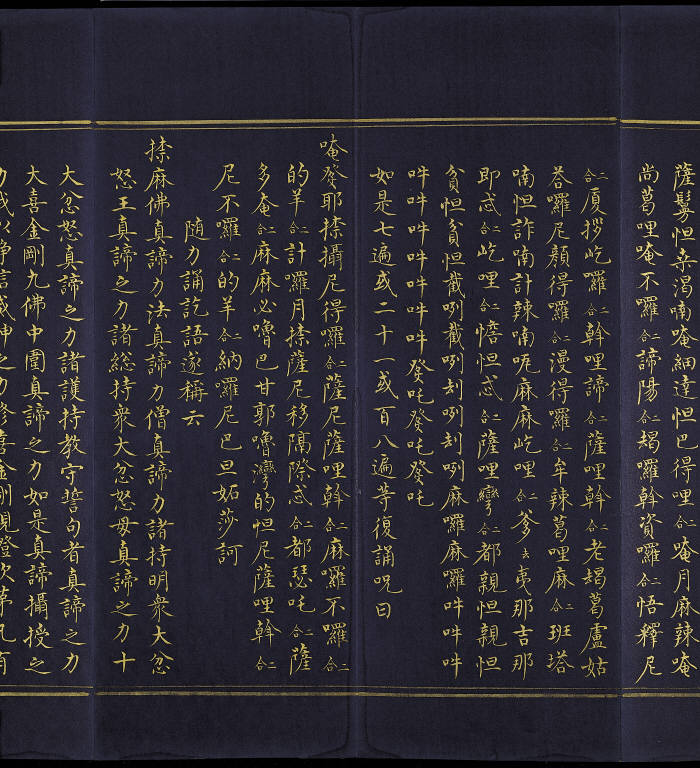 薩鬘怛桒渴喃唵細達怛巴得哩合二唵月麻辣唵
尚葛哩唵不囉合二諦陽合二朅囉斡資囉合二悟釋尼
合二厦拶屹囉合二斡哩諦合二薩哩斡合二老朅葛盧姑
荅囉尼顏得囉合二漫得囉合二牟辣葛哩麻合二班塔
喃怛詐喃計辣喃呃麻麻屹哩合二爹去夷那吉那
即忒合二屹哩合二憺怛忒合二薩哩彎合二都親怛親怛
貧怛貧怛截咧截咧刦咧刦咧麻囉麻囉吽吽吽
吽吽吽吽吽吽吽癹吒癹吒癹吒
如是七遍或二十一或百八遍等復誦咒曰
唵癹耶捺攝尼得囉合二薩尼薩哩斡合二麻囉不囉合二
的羊合二計囉月捺薩尼移隔際忒合二都瑟吒合二薩
多唵合二麻麻必嚕巴甘郭嚕灣的怛尼薩哩斡合二
尼不囉合二的羊合二納囉尼巴旦妬莎訶
随力誦訖語遂稱云
捺麻佛真諦力法真諦力僧真諦力諸持明衆大忿
怒王真諦之力諸総持衆大忿怒毋真諦之力十
大忿怒真諦之力諸護持教守誓句者真諦之力
大喜金剛九佛中圍真諦之力如是真諦攝授之